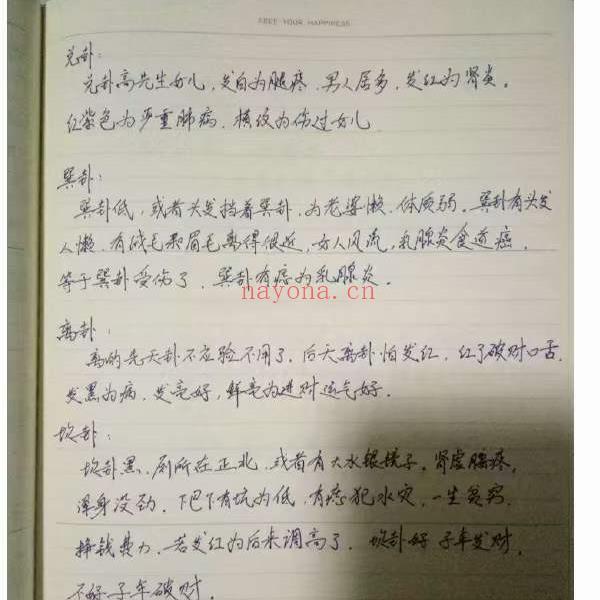 FREE YOUR HAPPINESS
兑卦:
兑卦高先生女儿,发白为腿疼,男人居多,发红为肾炎。
红紫色为严重肺病,横纹为伤过女儿
巽卦:
巽卦低,或者头发挡着巽卦,为老婆懒,体质弱。巽卦有头发
人懒,有绒毛和眉毛离得很近,女人风流,乳腺炎食道癌,
等于巽卦受伤了,巽卦有痣为乳腺炎。
nayona.cn
离卦:
离的先天卦不应验不用了,后天离卦怕发红,红了破财口舌,
发黑为病,发亮好,鲜亮为进财运气好。
坎卦:
坎卦黑,厕所在正北,或者有大水银镜子,肾虚腰疼,
浑身没劲,下巴下有坑为低,有痣犯水灾,一生贫穷
挣钱费力,若发红为后来调高了,坎卦好子年发财,
不好子年破财.